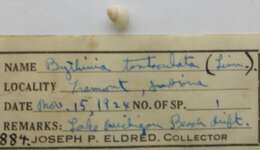 NAME Bythinia tentaculata (Linn.)
LOCALITY Fremont, Indiana
DATE Nov. 15, 1924 NO. OF SP. 1
REMARKS: Lake Michigan Beach drift.
884. JOSEPH P. ELDRED, COLLECTOR